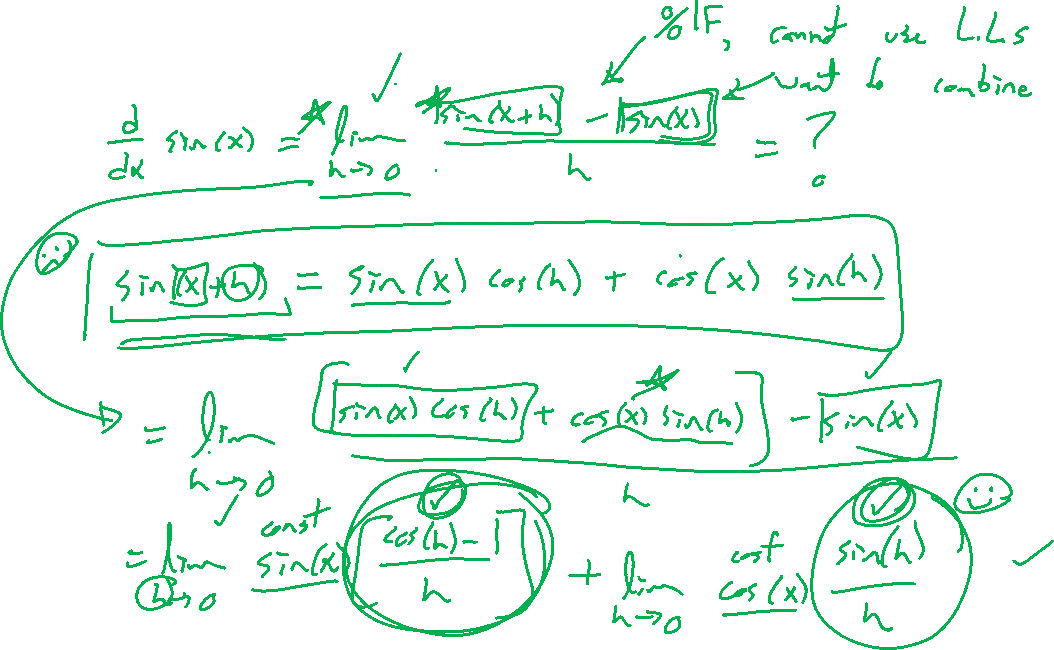 0/0 IF, cannot use L.L.s
want to combine
d/dx sin(x) = lim h→0 (sin(x+h) - sin(x))/h = ?
sin(x+h) = sin(x) cos(h) + cos(x) sin(h)
= lim h→0 ([sin(x) cos(h) + cos(x) sin(h)] - sin(x))/h
const cost
= lim h→0 sin(x) [(cos(h) - 1)/h] + lim h→0 cos(x) sin(h)/h